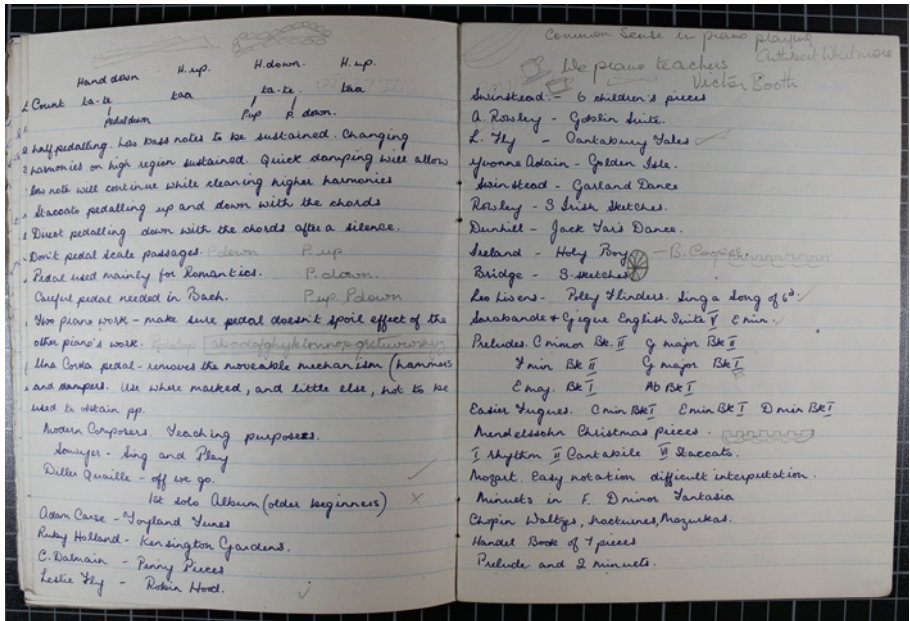 Hand down H. up. H. down. H. up.
Count ta-te taa ta-te. taa
pedal down P.up p. down.
half pedalling. Low bass notes to be sustained. Changing
harmonies on high region sustained. Quick damping will allow
low note will continue while cleaning higher harmonies
Staccato pedalling up and down with the chords
Direct pedalling down with the chords after a silence.
Don't pedal scale passages. P.down P. up
Pedal used mainly for Romantics. P. down.
Careful pedal needed in Bach. P. up P.down
Two piano work - make sure pedal doesn't spoil effect of the
other piano's work.
Una Corda pedal - removes the moveable mechanism (hammers
and dampers. Use where marked, and little else, not to be
used to obtain pp.
Modern Composers. Teaching purposes.
Sawyer - Sing and Play
Diller Quaille - off we go.
1st solo Album (older beginners)
Adam Carse - Toyland Tunes
Ruby Holland - Kensington Gardens.
C. Dalmain - Penny Pieces
Leslie Fly - Robin Hood.
Common Sense in piano playing
Cuthbert Whitmore
We piano teachers
Victor Booth
Swinstead - 6 children's pieces
A. Rowley - Goblin Suite.
L. Fly - Cantabury Tales
Yvonne Adair - Golden Isle.
Swinstead - Garland Dance
Rowley - 3 Irish Sketches.
Dunhill - Jack Tar's Dance.
Ireland - Holy Boy - B. Cooper
Bridge - 3 sketches
Leo Livens - Polly Flinders. Sing a Song of 6d.
Sarabande & Gigue English Suite V E min.
Preludes. C minor Bk. II G major Bk II
F min Bk II G major Bk I
E maj. Bk I Ab Bk I
Easier Fugues. C min Bk I E min Bk I D min Bk I
Mendelssohn Christmas pieces.
I rhythm II Cantabile VI Staccato.
Mozart. Easy notation difficult interpretation.
Minuets in F. D minor Fantasia
Chopin Waltzes, nocturnes, Mazurkas.
Handel Book of 7 pieces
Prelude and 2 minuets.